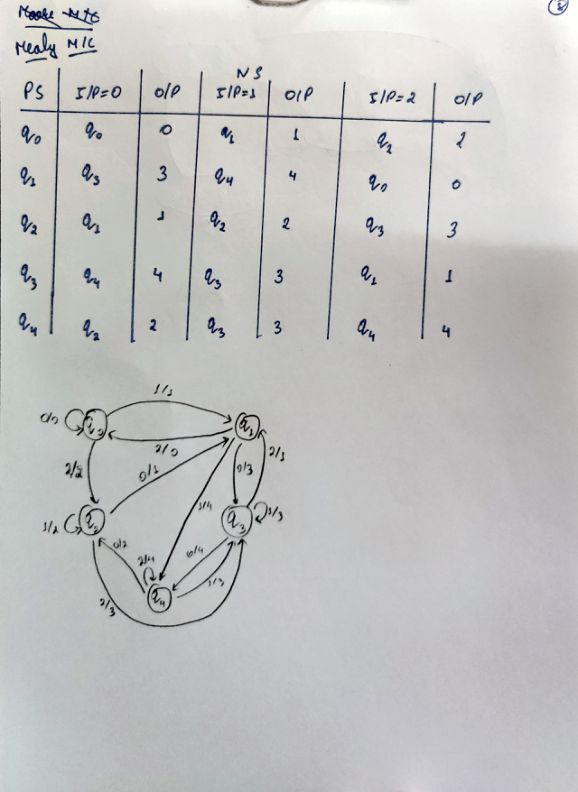 Moore M/C
Mealy M/C
NS
PS I/P=0 O/P I/P=1 O/P I/P=2 O/P
q0 q0 0 q1 1 q2 2
q1 q3 3 q4 4 q0 0
q2 q1 1 q2 2 q3 3
q3 q4 4 q3 3 q1 1
q4 q2 2 q3 3 q4 4
1/1
0/0 q0 q1
2/0
2/2 0/1 0/3 2/1
1/4
1/2 q2 q3 1/3
0/2 2/4 0/4
q4 1/3
2/3